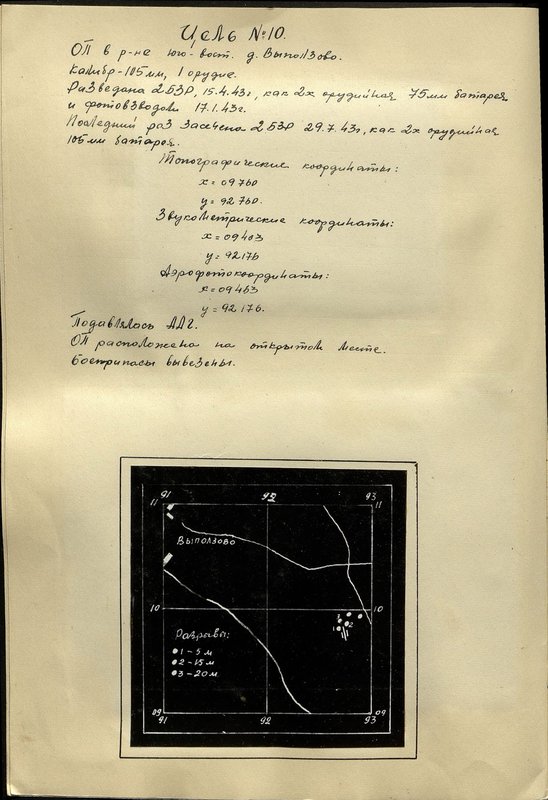 Цель №10.
ОП в р-не юго-вост. д. Выползово.
Калибр-105мм, 1 орудие.
Разведана 2 БЗР, 15.4.43г, как 2х орудийная 75мм батарея
и фотовзводом 17.1.43г.
Последний раз засечена 2 БЗР 29.7.43г, как 2х орудийная
105мм батарея.
Топографические координаты:
х = 09760
у = 92760.
Звукометрические координаты:
х = 09403
у = 92176
Аэрофотокоординаты:
х = 09463
у = 92176.
Подавлялась ААГ.
ОП расположена на открытом месте.
Боеприпасы вывезены.
91 92 93
11 11
Выползово
10 10
3
1 2
Разрывы:
1 - 5 м
2 - 15 м
3 - 20 м
09 09
91 92 93